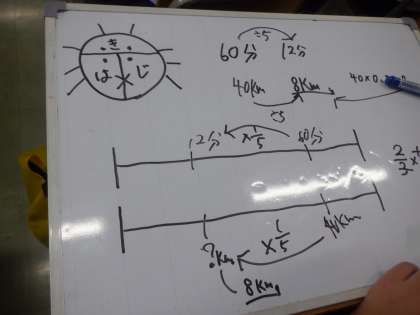 き
は×じ
÷5
60分 12分
40Km 8Km 40×0.
÷5
12分 ×1/5 60分
2/3
?Km ×1/5 40Km
8Km